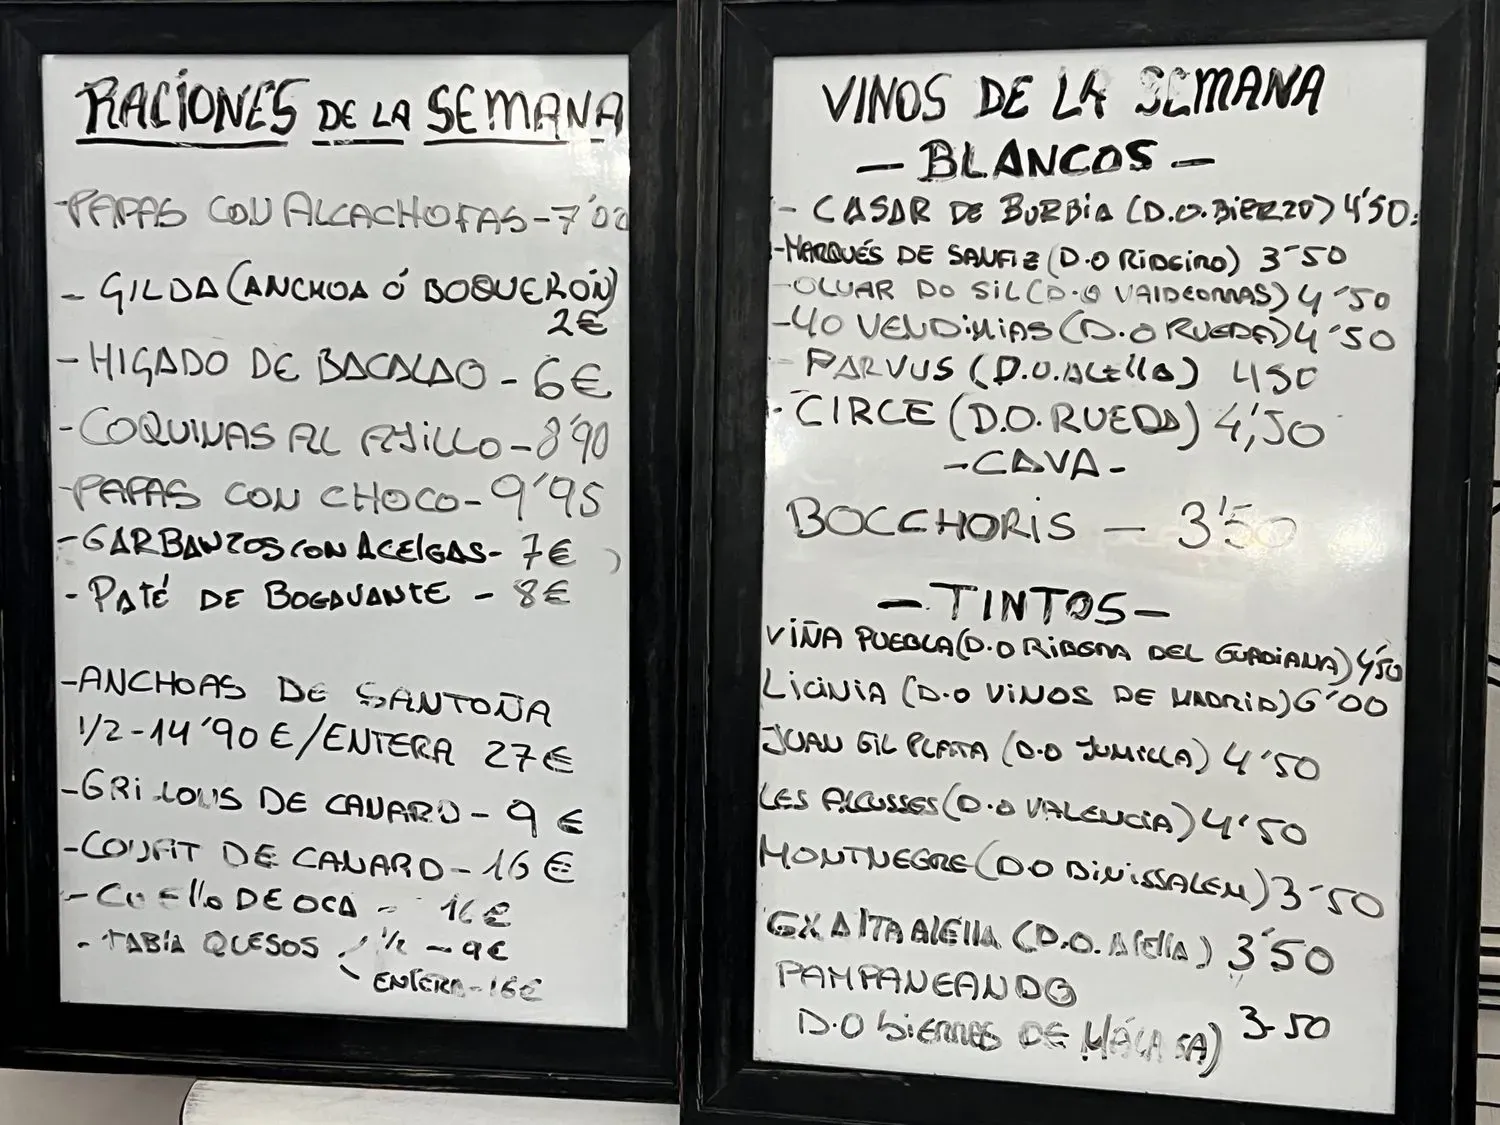 RACIONES DE LA SEMANA
-PAPAS CON ALCACHOFAS-7'00
- GILDA (ANCHOA Ó BOQUERÓN)
2€
- HIGADO DE BACALAO - 6€
-COQUINAS AL AJILLO-8'90
-PAPAS CON CHOCO-9'95
-GARBANZOS CON ACELGAS- 7€
- PATÉ DE BOGAVANTE - 8€
-ANCHOAS DE SANTOÑA
1/2-14'90€/ENTERA 27€
-GRILLONS DE CANARD-9€
-CONFIT DE CANARD-16€
-CUELLO DE OCA - 16€
- TABLA QUESOS 1/2 - 9€
ENTERA-16€
VINOS DE LA SEMANA
- BLANCOS -
- CASAR DE BURBIA (D.O.BIERZO) 4'50
-MARQUÉS DE SANFIZ (D.O RIBEIRO) 3'50
-OLVAR DO SIL(D.O VALDEORRAS) 4'50
-40 VENDIMIAS (D.O RUEDA) 4'50
- PARVUS (D.O.ALELLA) 450
- CIRCE (D.O.RUEDA) 4,50
-CAVA-
BOCCHORIS - 3'50
- TINTOS -
VIÑA PUEBLA(D.O RIBERA DEL GUADIANA) 4'50
LICINIA (D.O VINOS DE MADRID) 6'00
JUAN GIL PLATA (D.O JUMILLA) 4'50
LES ALCUSSES(D.O VALENCIA) 4'50
MONTNEGRE(D.O BINISSALEM) 3'50
EXALTA ALELLA (D.O. Alella) 3'50
PAMPANEANDO
D.O SIERRAS DE MÁLAGA) 3-50